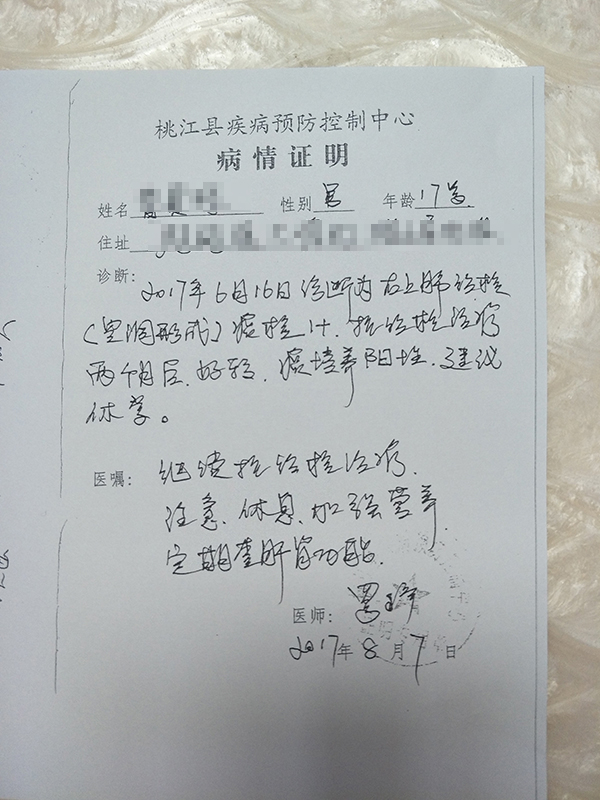 桃江县疾病预防控制中心
病情证明
姓名 性别 男 年龄 17岁
住址
诊断: 2017年6月16日诊断为右上肺结核
(空洞形成)痰检1+.抗结核治疗
两个月后.好转.痰培养阳性.建议
休学。
医嘱: 继续抗结核治疗.
注意.休息.加强营养
定期查肝肾功能.
医师:
2017年8月7日